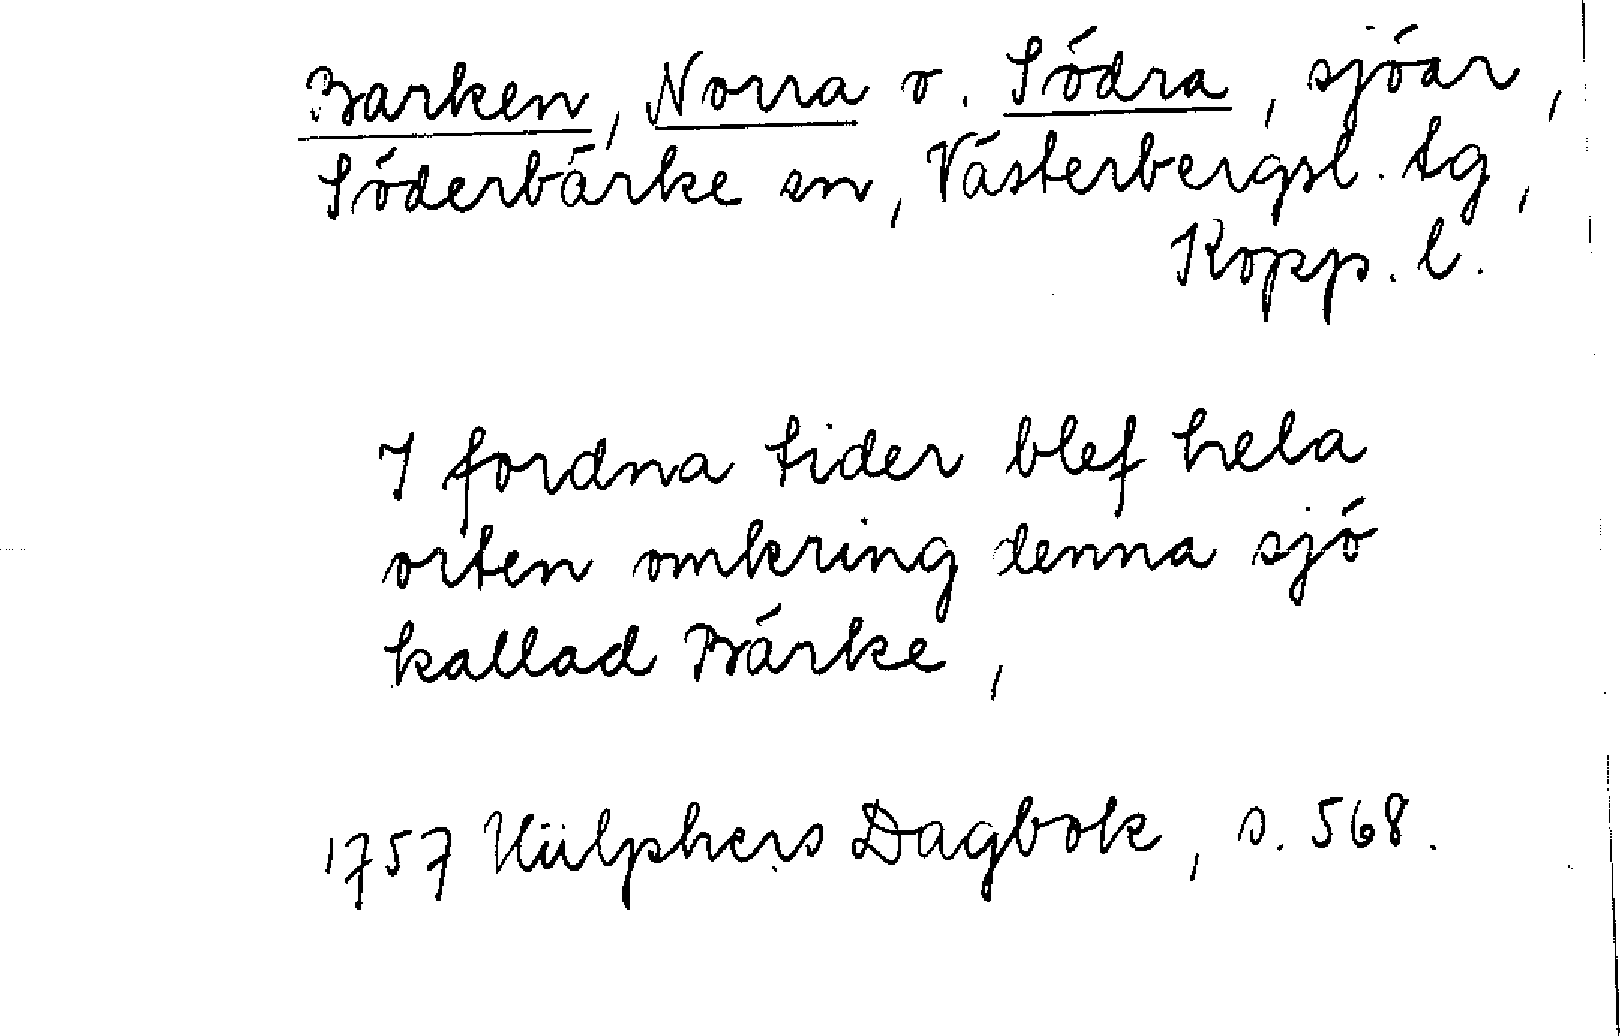 Barken, Norra o. Södra, sjöar,
Söderbärke sn, Västerbergsl. tg,
Kopp. l.
I fordna tider blef hela
orten omkring denna sjö
kallad Bärke,
1757 Hülphers Dagbok, s. 568.